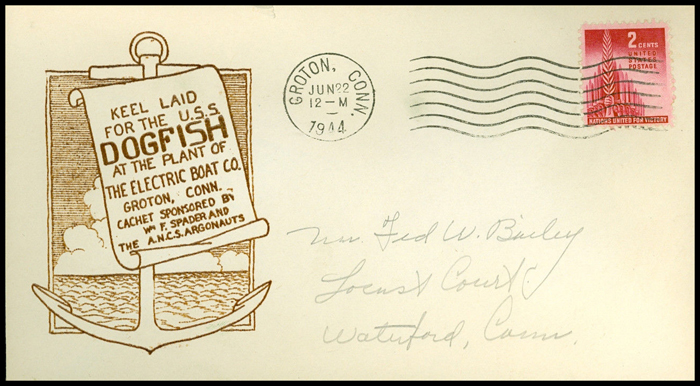 KEEL LAID
FOR THE U.S.S.
DOGFISH
AT THE PLANT OF
THE ELECTRIC BOAT CO.
GROTON, CONN.
CACHET SPONSORED BY
WM F. SPADER AND
THE A.N.C.S. ARGONAUTS
GROTON, CONN.
JUN 22
12-M
1944
2 CENTS
UNITED
STATES
POSTAGE
NATIONS UNITED FOR VICTORY
Mr. Ted W. Bailey
Locust Court
Waterford, Conn.